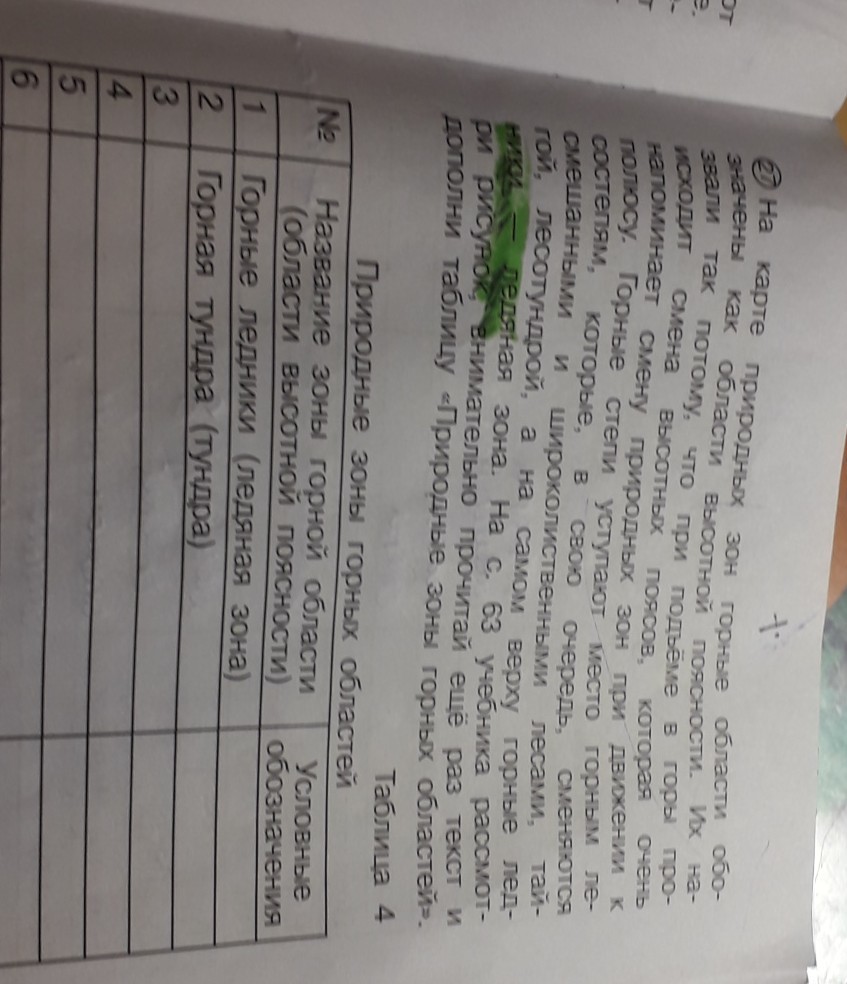 27 На карте природных зон горные области обо-
значены как области высотной поясности. Их на-
звали так потому, что при подъёме в горы про-
исходит смена высотных поясов, которая очень
напоминает смену природных зон при движении к
полюсу. Горные степи уступают место горным ле-
состепям, которые, в свою очередь, сменяются
смешанными и широколиственными лесами, тай-
гой, лесотундрой, а на самом верху горные лед-
ники — ледяная зона. На с. 63 учебника рассмот-
ри рисунок, внимательно прочитай ещё раз текст и
дополни таблицу «Природные зоны горных областей».
Таблица 4
Природные зоны горных областей
№ Название зоны горной области (области высотной поясности) Условные обозначения
1 Горные ледники (ледяная зона)
2 Горная тундра (тундра)
3
4
5
6